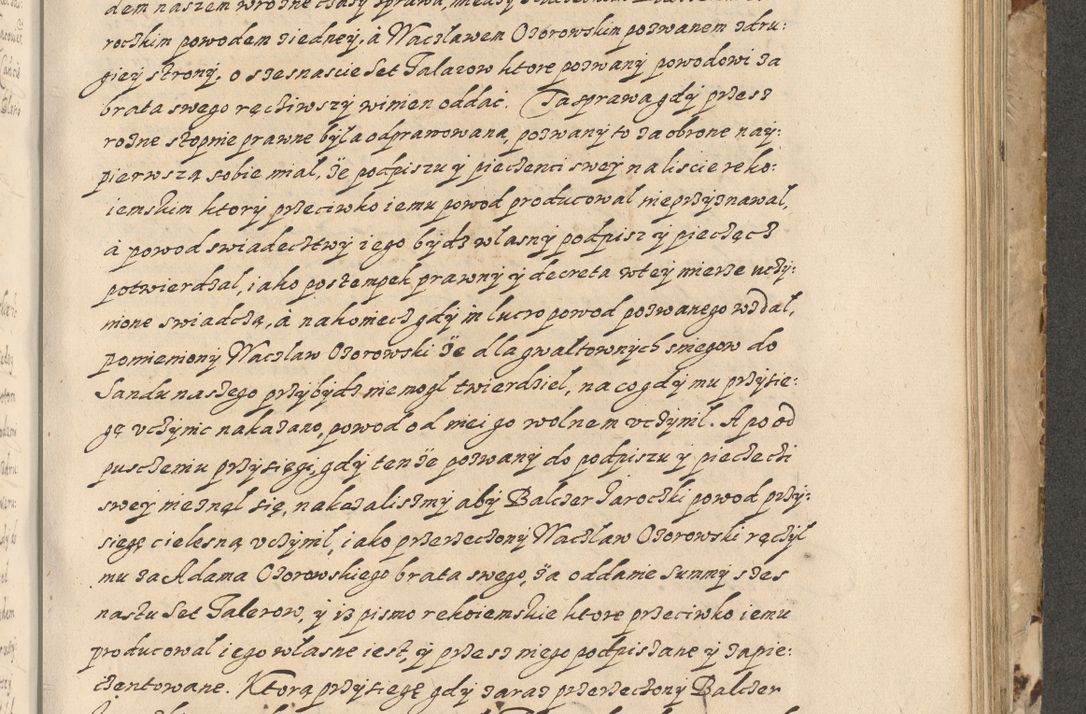 dem naszem w rożne czasy sprawa, miedzy
roczkim powodem z iedney, à Waczlawem Ozorowskim pozwanem z dru:
giey strony, o szesnascie set Talarow ktore pozwany powodowi za
brata swego ręcziwszy winien oddać. Ta sprawa gdy przesz
rożne stopnie prawne była odprawowana, pozwany to za obrone nay:
pierwszą sobie miał, że podpiszu y pieczenci swey na liscie reko:
iemskim ktory przeciwko iemu powod producował nie przyznawał,
à powod swiadecztwy iego bydz własny podpisz y pieczęcz
potwierdzał, iako postempek prawny y decreta w tey mierze uczy:
nione swiadczą, à nakoniecz gdy in lucro powod pozwanego wzdał,
pomieniony Waczlaw Ozorowski że dla gwałtownych sniegow do
Sandu naszego przybydz nie mogł twierdzieł, na co gdy mu przysie:
gę vczynic nakazano, powod od niei go wolnem vczynił. A po od
pusczeniu przysięgi, gdy tenże pozwany do podpiszu y pieczeczi
swey nie znał się, nakazalismy aby Balczer Jaroczki powod przy:
sięgę cielesną vczynił, iako przerzeczony Waczlaw Ozorowski ręczył
mu za Adama Ozorowskiego brata swego, za oddanie summy szes
nastu set Talerow, y isz pismo rekoiemskie ktore przeciwko iemu
producował iego własne iest, y przesz niego podpiszane y zapie:
czentowane. Ktorą przysięgę gdy zaraz przerzeczony Balczer